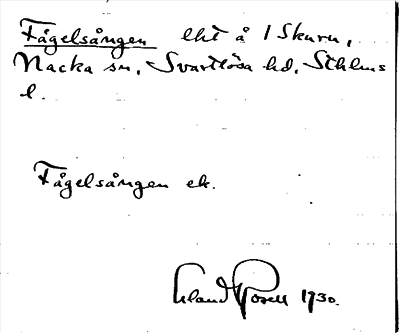 Fågelsången lht å 1 Skuru,
Nacka sn, Svartlösa hd, Sthlms
l.
Fågelsången ek.
Erland Rosell 1930.